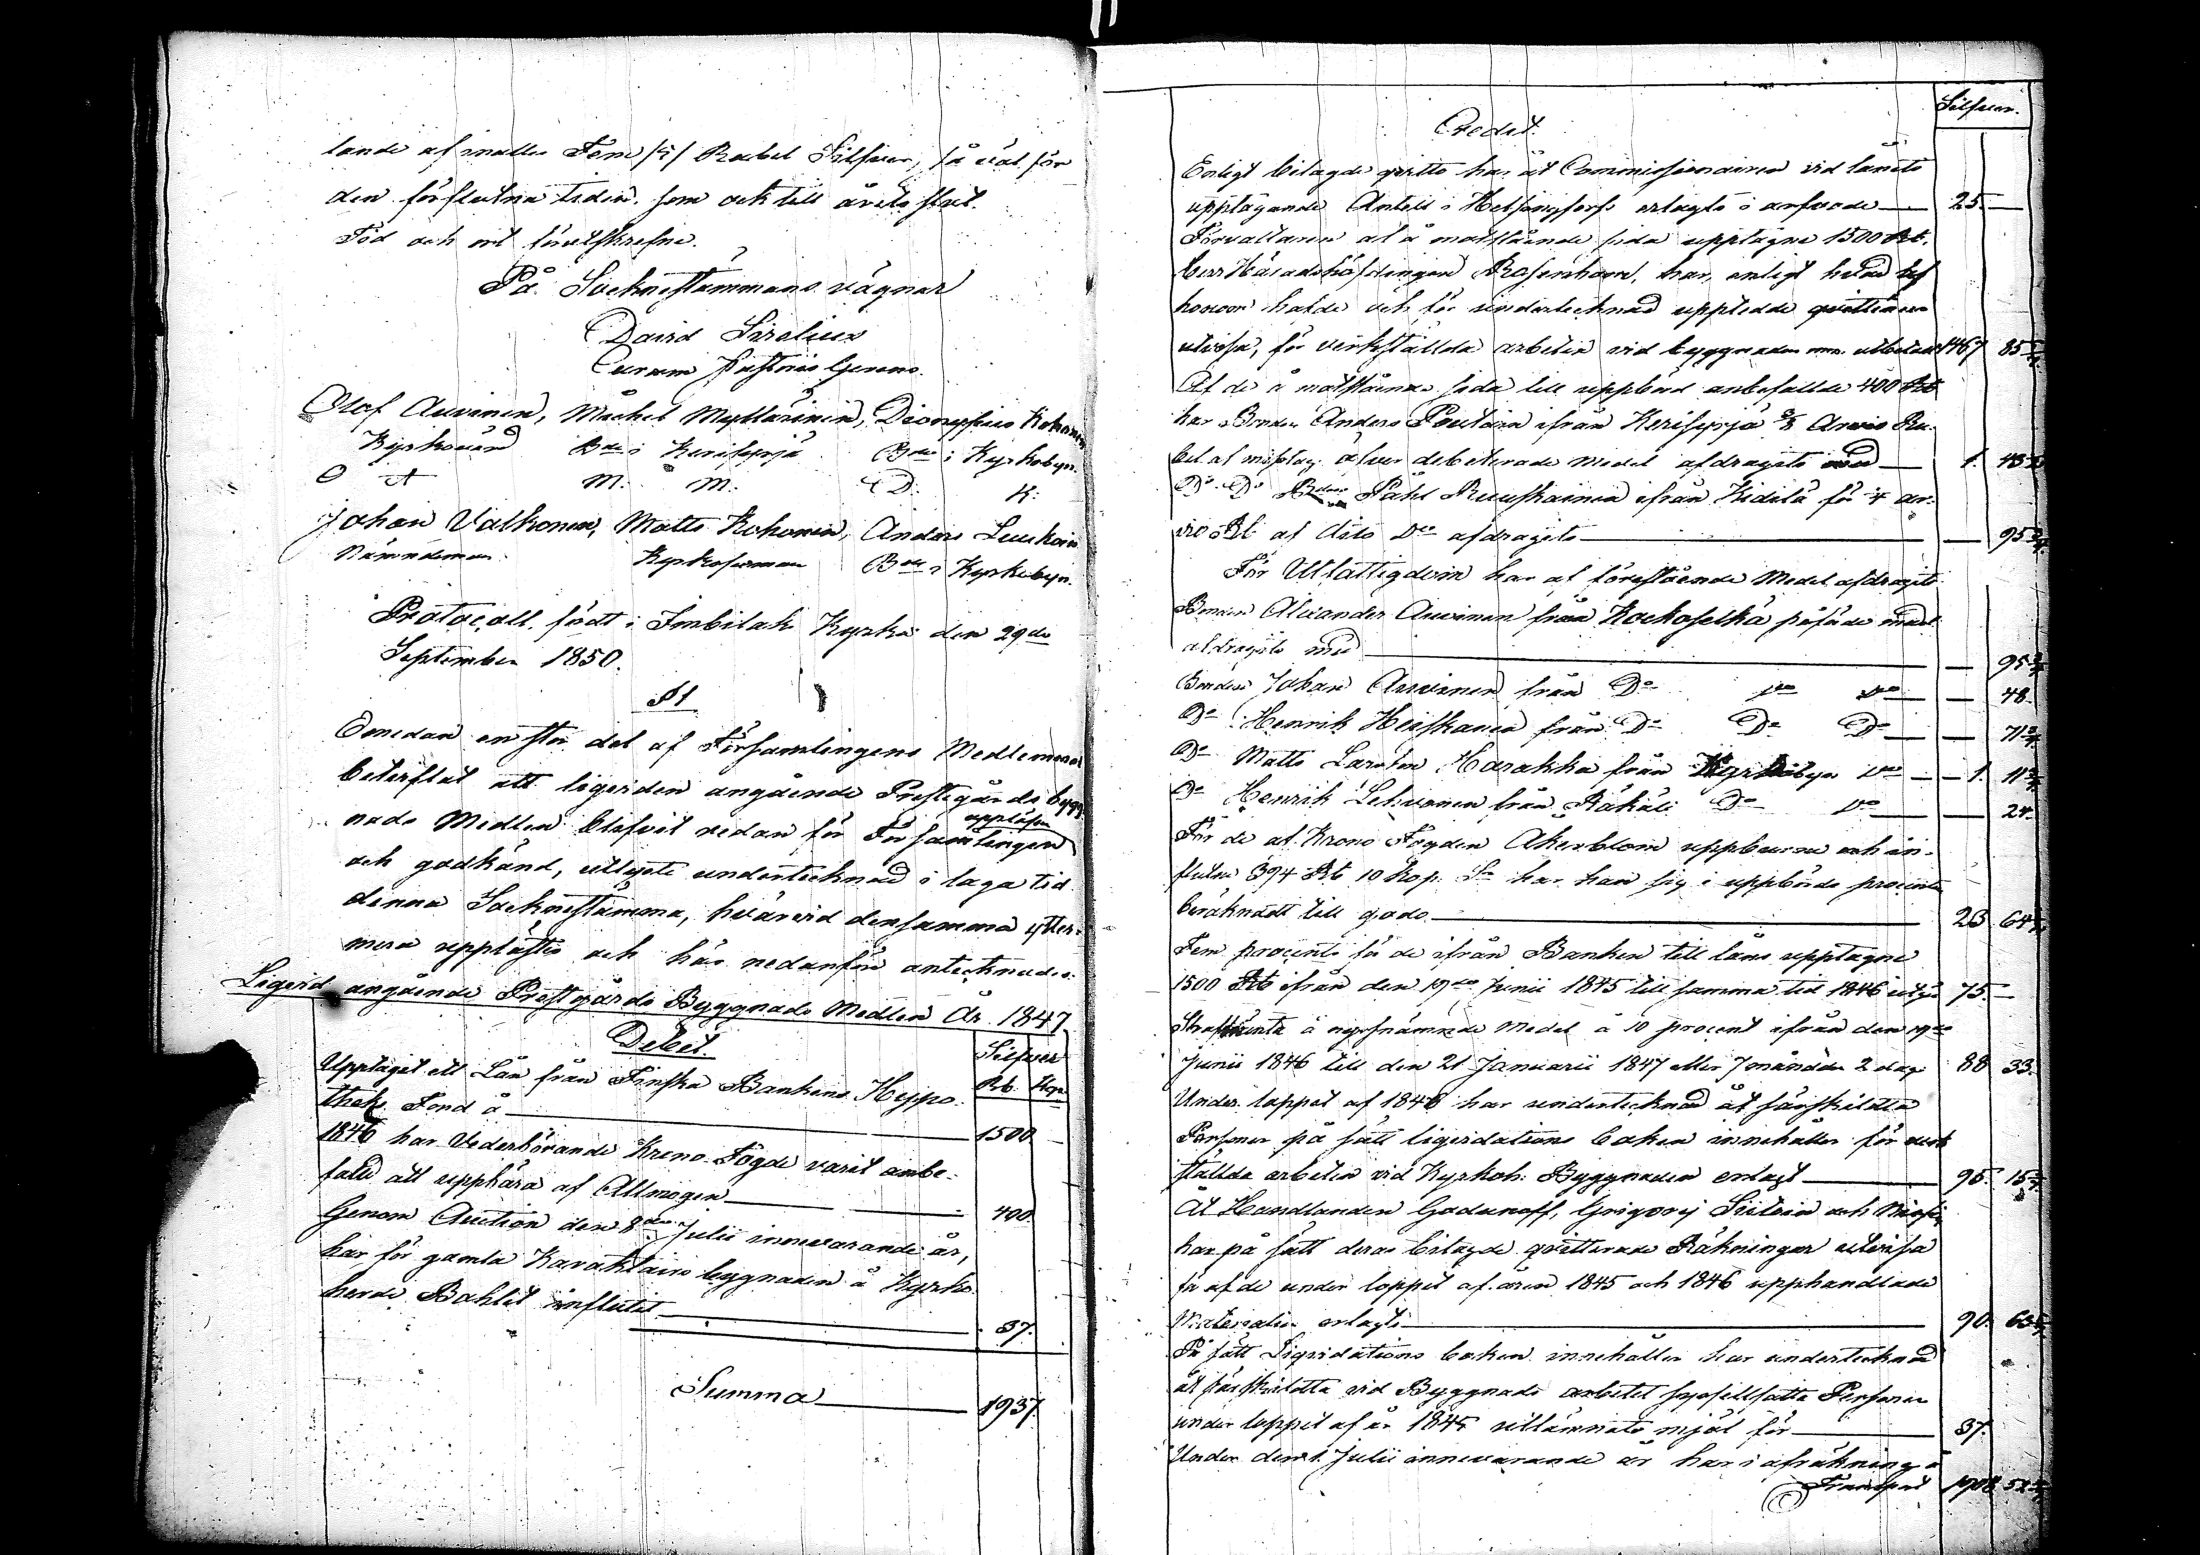 lande af inalles Fem /5/ Rubel Silfver, så väl för
den förflutna tiden. som ock till årets slut.
Tid och ort förutskrefne.
På Socknestämmans vägnar
David Sirelius
Curam pastoris gerens.
Olof Auvinen, Mickel Myllärinen, Dionysius Kokonen
Kyrkovärd Bde i Kerisyrjä Bde i Kyrkobyn.
O A M. M. D. K.
Johan Valkonen, Matts Kokonen, Anders Leuskoin
Nämndeman Kyrkosexman Bde i Kyrkobyn.
Protocoll, fördt i Imbilaks Kyrka den 29de
September 1850.
§ 1
Emedan en stor del af Församlingens Medlemmar
att liqviden angående Prestegårds bygg-
nads Medlen blifvit redan för Församlingen uppläsen
och godkänd, utlyste undertecknad i laga tid
denna Socknestämma, hvarvid densamma ytter-
mera upplästes och här nedanföre antecknades.
Liqvid angående Prestgårds Byggnads Medlen År 1847
Debet. Silfver
Rb. Kop
Upptagit ett Lån från Finska Bankens Hypo-
theks Fond à 1500
1846 har Vederbörande Krono Fogde varit anbe-
fald att uppbära af Allmogen 400.
Genom Auction den 8de Julii innevarande år,
har för gamla Karaktairs byggnaden å Kyrko-
herde Bohlet influtit 37.
Summa 1937.
Credit. Silfver.
Enligt bilagde qvitto har åt Commissionairen vid lånets
upptagande Antell i Helsingfors erlagts i arfvode 25.
Förvaltaren af å motstående sida upptagne 1500 Rb.
herr Häradshöfdingen Rosenhoern, har, enligt hvad
honom hafde och för undertecknad uppledde qvittancer
utvisa, för verkställda arbeten vid byggnaden mm. utbetalt 1467 85
Af de å motstående sida till uppbörd anbefallde 400 Rb
har Bonden Anders Poutain ifrån Kerisyrjä Arvio Ru-
bel af misstag öfver debeterade Medel afdragits med 1. 43
Do Do Bonden Påhl Ruuskainen ifrån Kidilä för 4 ar-
vio Rb af dito Do afdragits 95
För Utfattigdom har af förestående Medel afdragits
Bonden Alexander Auvinen från Kockoselkä påförde medel
afdragits med 95
Bonden Johan Auvinen från Do Do Do 48.
Do Henrik Heiskanen från Do Do Do 71
Do Matts Larsson Harakka från Kyrkobyn Do 1. 11
Do Henrik Lehvonen från Räkäli Do Do 24.
För de af Krono Fogden Åkerblom uppburne och in-
flutne 394 Rb 10 Kop. Sr har han sig i uppbörds procent
beräknadt till godo 23 64
Fem procents för de ifrån Banken till låns upptagne
1500 Rb ifrån den 19de Junii 1845 till samma tid 1846 75.
Straffränta å nyssnämnde Medel à 10 procent ifrån den 19de
Junii 1846 till den 21 Januarii 1847 eller 7 månader 2 dag. 88 33.
Under loppet af 1846 har undertecknad åt särskildta
Personer på sätt liqvidations boken innehåller för verk-
ställda arbeten vid Kyrkoh. Byggnaden erlagt 95. 15
Åt Handlanden Godunoff, Grigorij Siitoin och
har på sätt deras bilagde qvitterade Räkningar utvisa
för af de under loppet af åren 1845 och 1846 upphandlade
Materialier erlagts 90. 63
På sätt Liqvidations boken innehåller har undertecknad
åt särskildta vid Byggnads arbetet sysselsatta Personer
under loppet af år 1845 utlämnats mjöl för 37.
Under den 1. Julii innevarande år har i afräkning å
Transport 1908 52